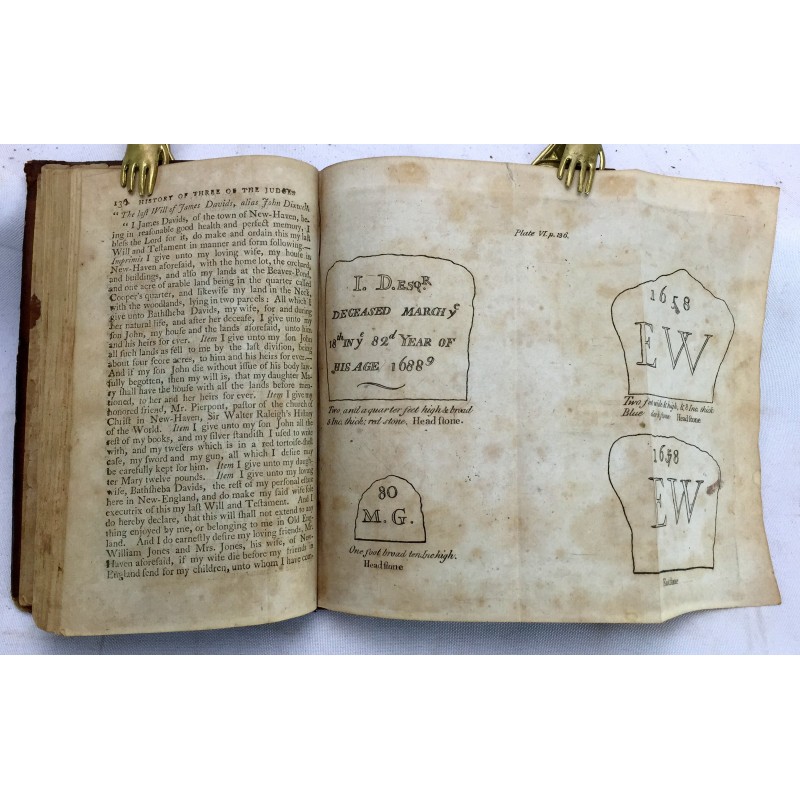 136 HISTORY OF THREE OF THE JUDGES
"The last Will of James Davids, alias John Dixwell.
"I James Davids, of the town of New-Haven, be-
ing in reasonable good health and perfect memory, I
bless the Lord for it, do make and ordain this my last
Will and Testament in manner and form following.—
Imprimis I give unto my loving wife, my house in
New-Haven aforesaid, with the home lot, the orchard,
and buildings, and also my lands at the Beaver-Pond,
and one acre of arable land being in the quarter called
Cooper's quarter, and likewise my land in the Neck,
with the woodlands, lying in two parcels: All which I
give unto Bathsheba Davids, my wife, for and during
her natural life, and after her decease, I give unto my
son John, my house and the lands aforesaid, unto him
and his heirs for ever. Item I give unto my son John
all such lands as fell to me by the last division, being
about four score acres, to him and his heirs for ever—
And if my son John die without issue of his body law-
fully begotten, then my will is, that my daughter Ma-
ry shall have the house with all the lands before men-
tioned, to her and her heirs for ever. Item I give my
honored friend, Mr. Pierpont, pastor of the church of
Christ in New-Haven, Sir Walter Raleigh's History
of the World. Item I give unto my son John all the
rest of my books, and my silver standish I used to write
with, and my twesers which is in a red tortoise-shell
case, my sword and my gun, all which I desire may
be carefully kept for him. Item I give unto my daugh-
ter Mary twelve pounds. Item I give unto my loving
wife, Bathsheba Davids, the rest of my personal estate
here in New-England, and do make my said wife sole
executrix of this my last Will and Testament. And I
do hereby declare, that this will shall not extend to any
thing enjoyed by me, or belonging to me in Old Eng-
land. And I do earnestly desire my loving friends, Mr.
William Jones and Mrs. Jones, his wife, of New-
Haven aforesaid, if my wife die before my friends in
England send for my children, unto whom I have com-
Plate VI. p. 136.
I. D. ESQR
DECEASED MARCH ye
18th IN ye 82d YEAR OF
HIS AGE 1688 9
Two and a quarter feet high & broad
5 Inc. thick: red stone. Head stone.
80
M. G.
One foot broad ten Inc high.
Head stone
1658
EW
Two feet wide & high, & 8 Inc. thick
Blue dark stone Head stone
1658
EW